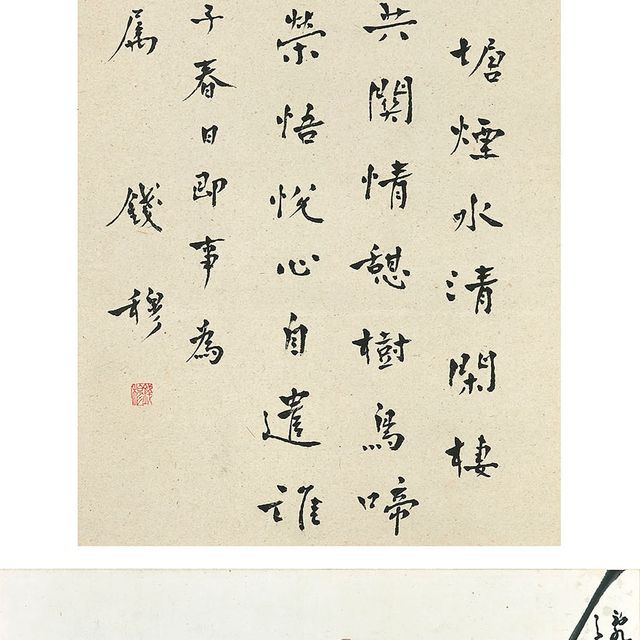 塘煙水清閑棲
共關情憩樹鳥啼
榮悟悅心自遣誰
子春日即事為
屬 錢穆